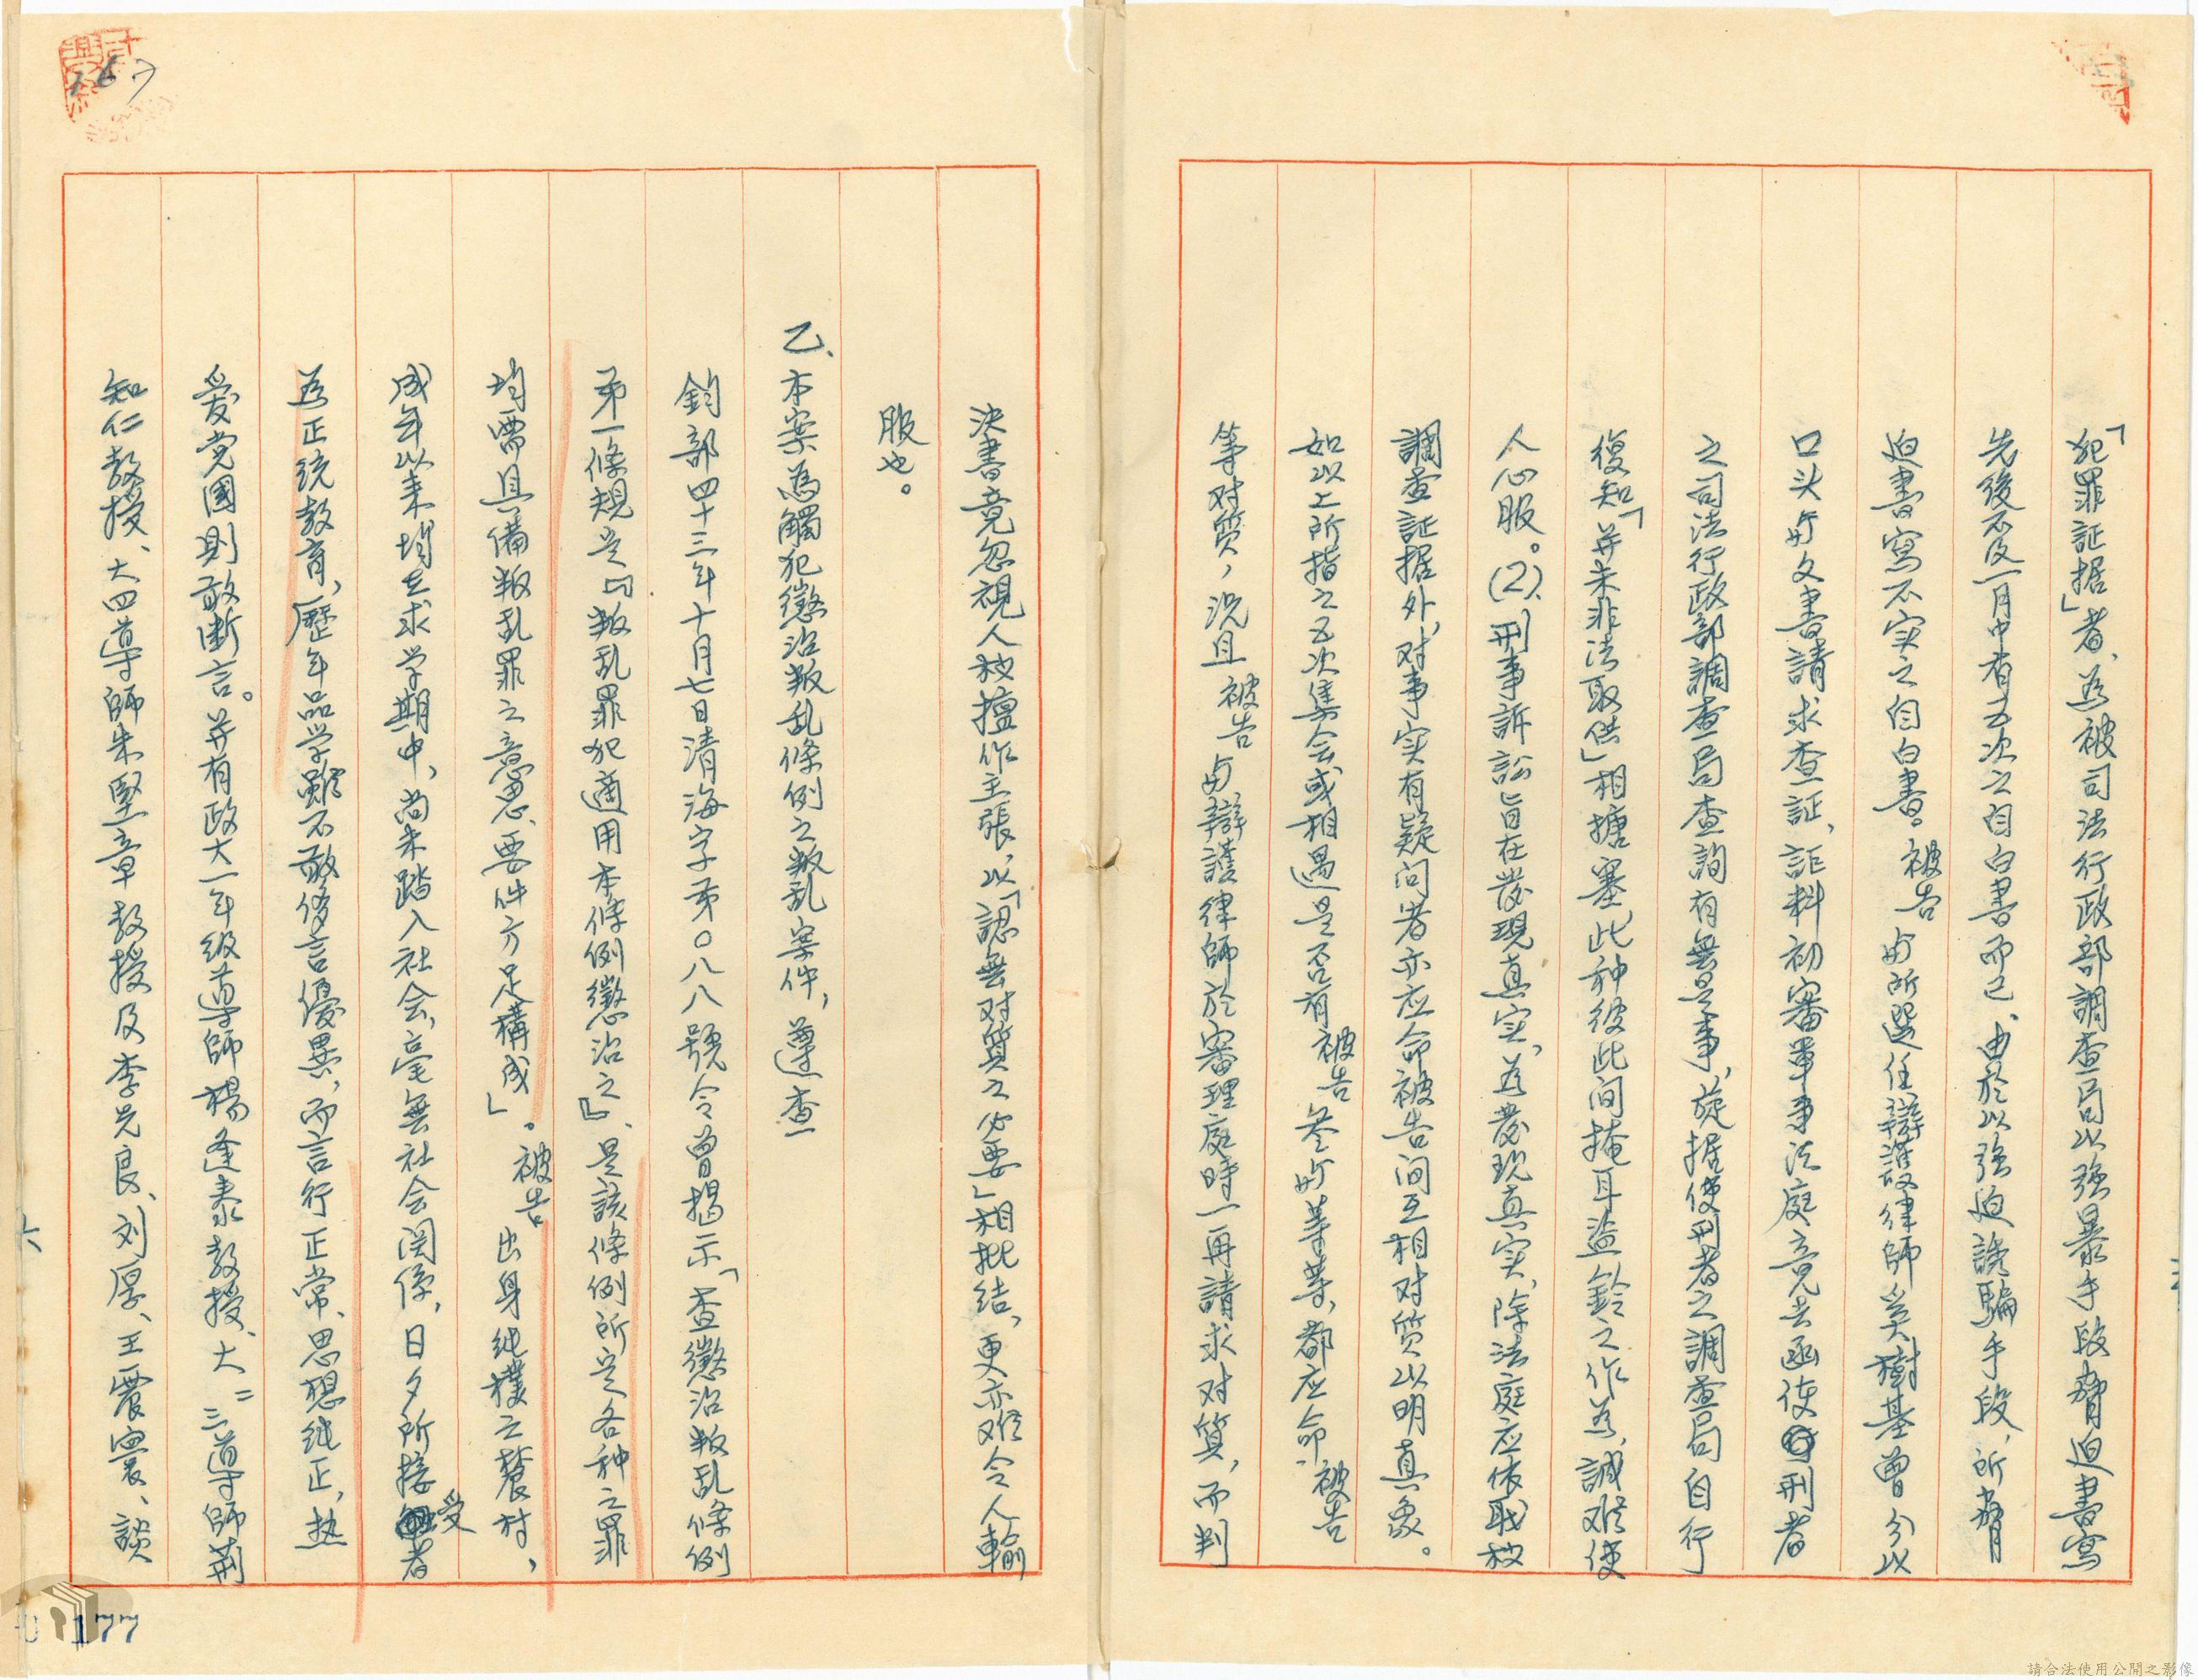 「犯罪証据」者、為被司法行政部調查局以強暴手段脅迫書寫
先後不及一月中有五次之自白書而已、由於以強迫誘騙手段、所脅
迫書寫不实之自白書。被告與所選任辯護律師吳樹基曾分以
口头與文書請求查証、詎料初審軍事法庭竟去函使刑者
之司法行政部調查局查詢有無是事、旋据使刑者之調查局自行
復知「并未非法取供」相搪塞此种彼此间掩耳盜鈴之作為、誠难使
人心服。(2)、刑事訴訟旨在發現真实、為發現真实、除法庭应依职权
調查証据外、对事实有疑问者亦应命被告间互相对质以明真象。
如以上所指之五次集会或相遇是否有被告參與等等、都应命被告
等对質，况且被告與辯護律師於審理庭時一再請求对質，而判
決書竟忽視人权擅作主張，以「認無对質之必要」相批结，更亦难令人輸
服也。
乙、本案為觸犯懲治叛乱條例之叛乱案件，遵查
鈞部四十三年十月七日清海字第〇八八號令曾揭示「查懲治叛乱條例
第一條規定『叛乱罪犯適用本條例懲治之』、是該條例所定各种之罪
均需具備叛乱罪之意思、要件方足構成」。被告出身纯樸之農村，
成年以来均在求学期中、尚未踏入社会、毫無社会関係，日夕所接受者
為正統教育，歷年品学雖不敢侈言優異，而言行正常、思想純正，热
爱党國則敢断言。并有政大一年级導師楊逢泰教授、大二三導師荊
知仁教授、大四導師朱堅章教授及李元良、刘厚、王震寰、談
六
167
177
請合法使用公開之影像